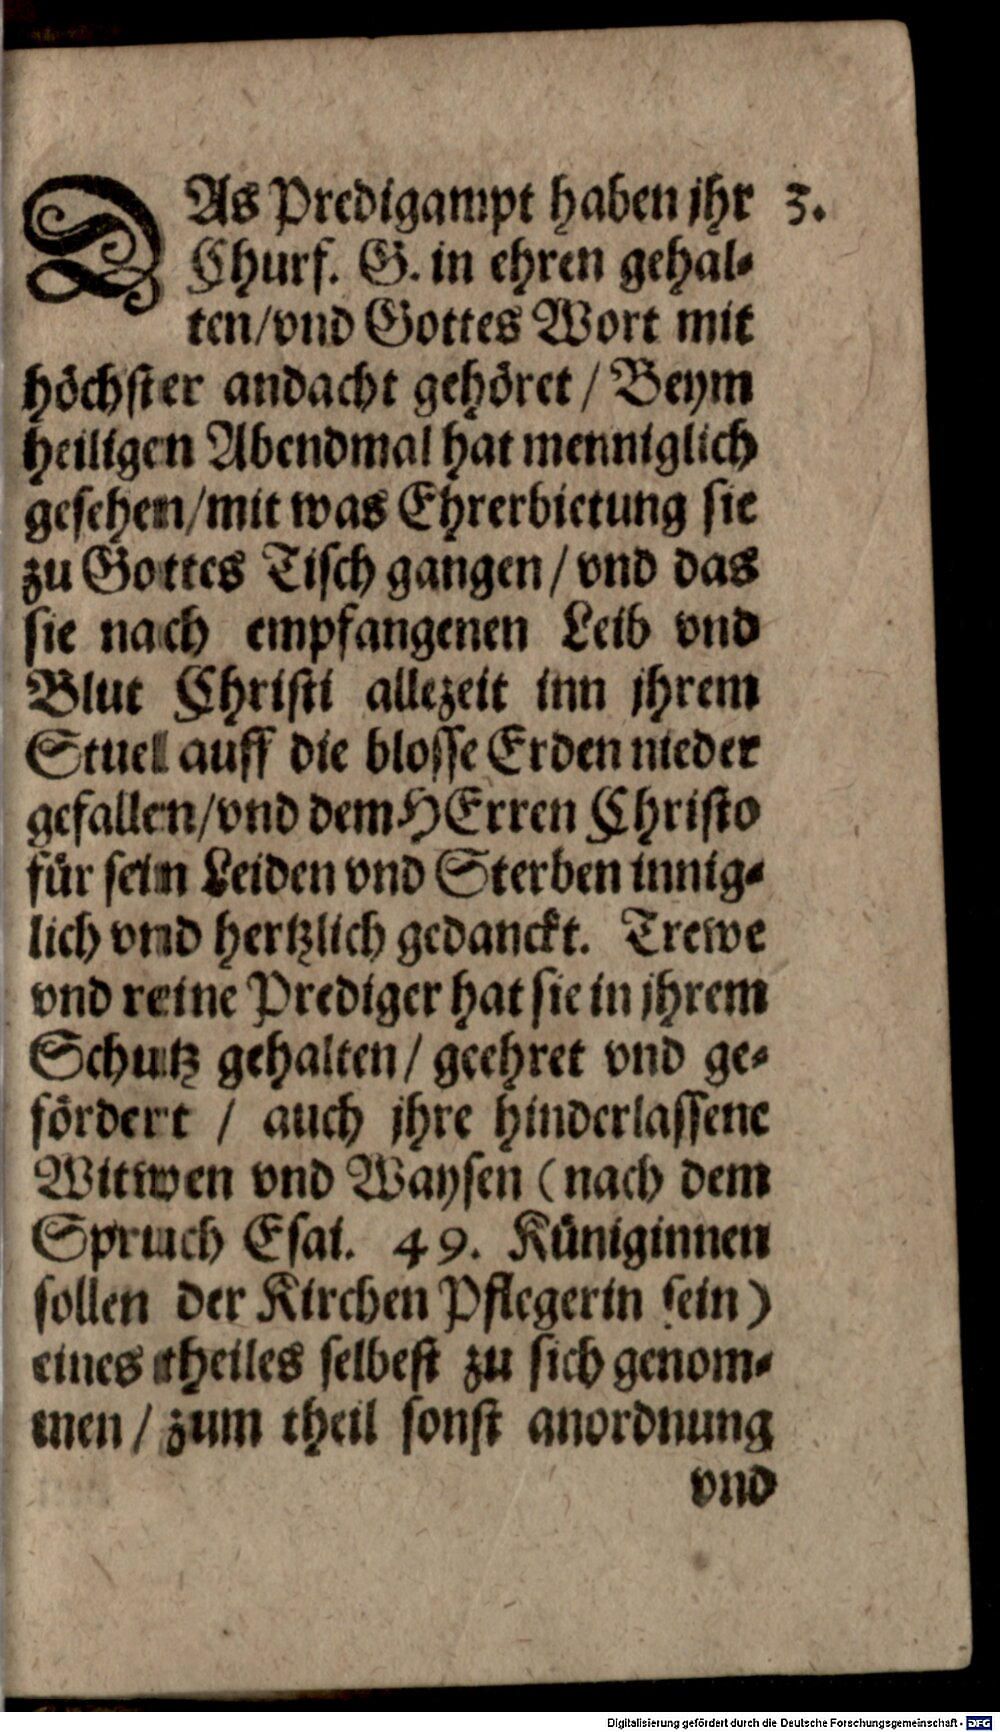 DAs Predigampt haben jhr 3.
Churf. G. in ehren gehal-
ten/vnd Gottes Wort mit
höchster andacht gehöret / Beym
heiligen Abendmal hat menniglich
gesehen/mit was Ehrerbietung sie
zu Gottes Tisch gangen / vnd das
sie nach empfangenen Leib vnd
Blut Christi allezeit inn jhrem
Stuel auff die blosse Erden nieder
gefallen/vnd dem HErren Christo
für sein Leiden vnd Sterben innig-
lich vnd hertzlich gedanckt. Trewe
vnd reine Prediger hat sie in jhrem
Schutz gehalten / geehret vnd ge-
fördert / auch jhre hinderlassene
Witwen vnd Waysen (nach dem
Spruch Esai. 49. Küniginnen
sollen der Kirchen Pflegerin sein)
eines theiles selbest zu sich genom-
men / zum theil sonst anordnung
vnd
Digitalisierung gefördert durch die Deutsche Forschungsgemeinschaft - DFG